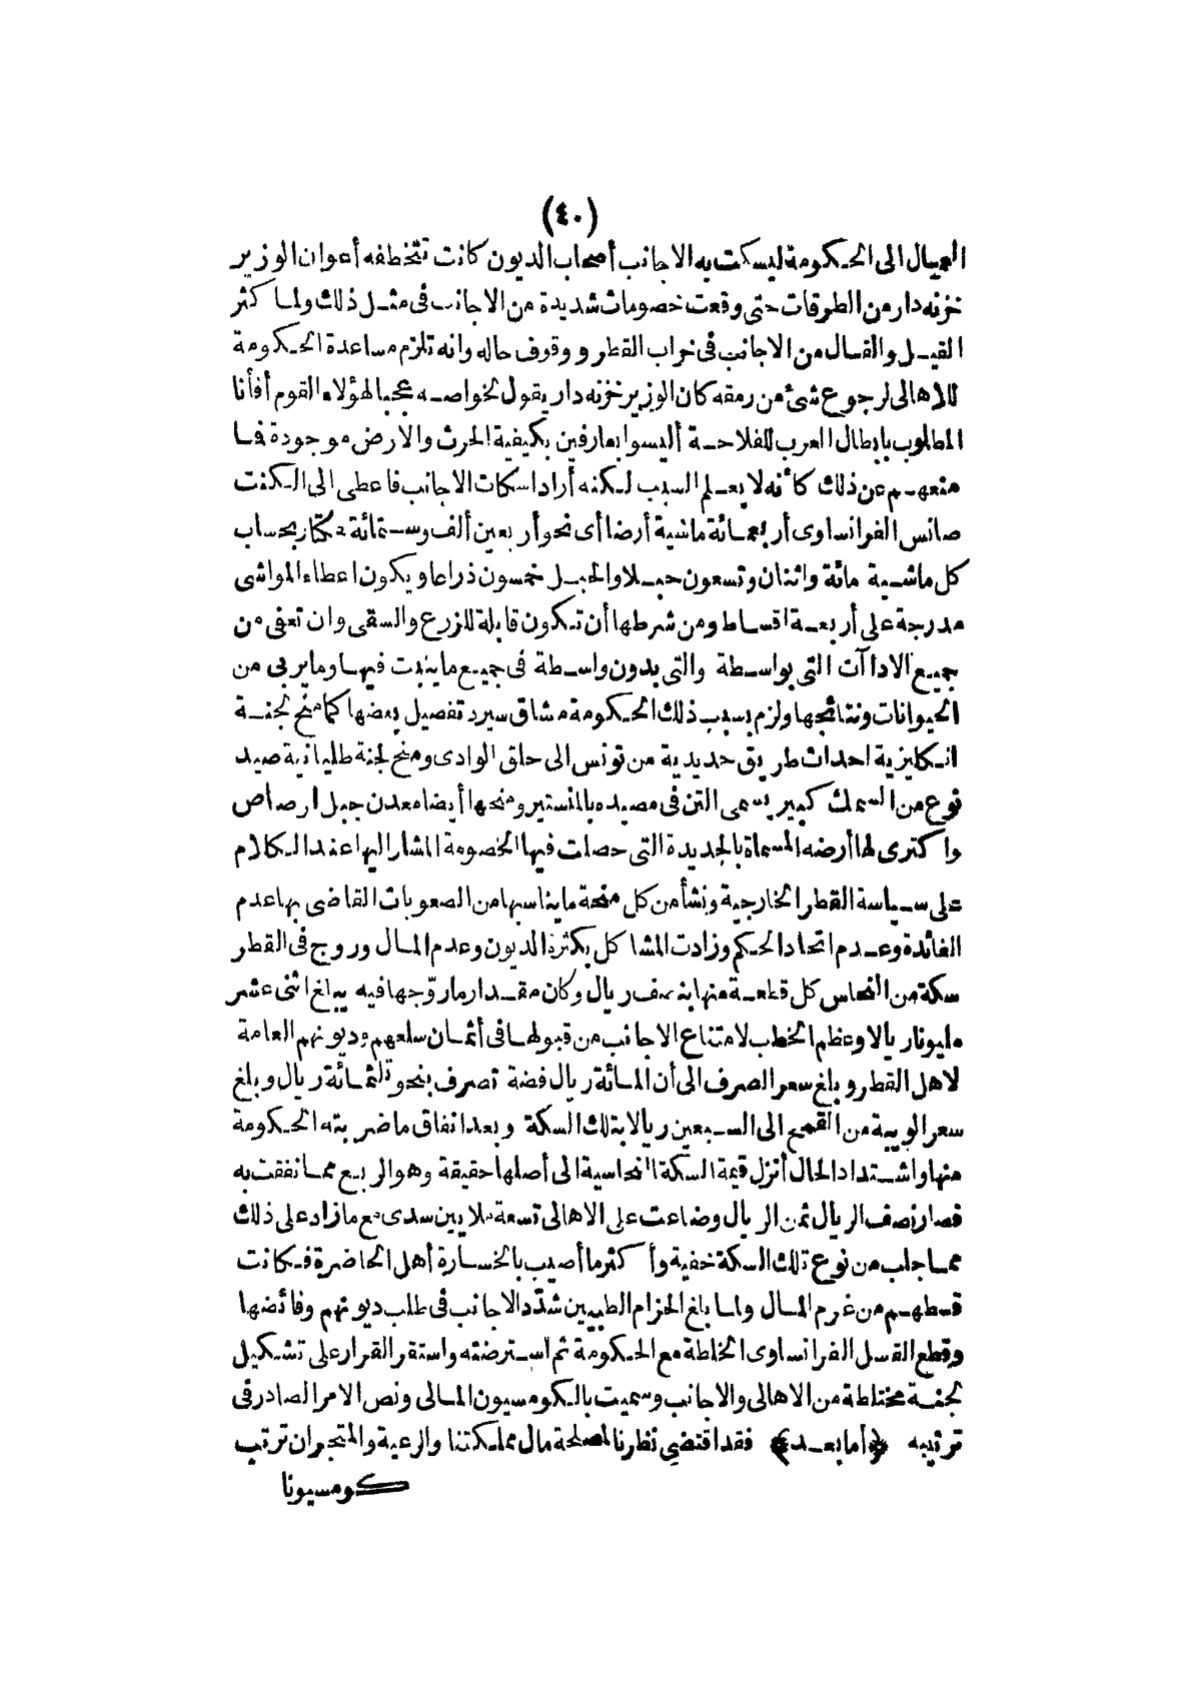 (٤٠)
العمال الى الحكومة ليسكت به الاجانب أصحاب الديون كانت تتخطفه أعوان الوزير
خزنه دار من الطرقات حتى وقعت خصومات شديدة من الاجانب فى مثل ذلك ولما كثر
القيل والقال من الاجانب فى خراب القطر ووقوف حاله وانه تلزم مساعدة الحكومة
للاهالى لرجوع شئ من رمقه كان الوزير خزنه دار يقول لخواصه عجبا لهؤلاء القوم أفأنا
المطلوب بابطال العرب للفلاحة أليسوا بعارفين بكيفية الحرث والارض موجودة فما
منعهم عن ذلك كأنه لا يعلم السبب لكنه أراد اسكات الاجانب فاعطى الى الكنت
صانس الفرانساوى أربعمائة ماشية أرضا أى نحو أربعين ألف وستمائة هكتار بحساب
كل ماشية مائة واثنان وتسعون حبلا والحبل خمسون ذراعا ويكون اعطاء المواشى
مدرجة على أربعة اقساط ومن شرطها أن تكون قابلة للزرع والسقى وان تعفى من
جميع الاداآت التى بواسطة والتى بدون واسطة فى جميع ما ينبت فيها وما يربى من
الحيوانات ونتائجها ولزم بسبب ذلك الحكومة مشاق سيرد تفصيل بعضها كما منح لجنة
انكليزية احداث طريق حديدية من تونس الى حلق الوادى ومنح لجنة طليانية صيد
نوع من السمك كبير يسمى التن فى مصيده بالمنستير ومنحها أيضا معدن جبل ارصاص
واكترى لها أرضه المسماة بالجديدة التى حصلت فيها الخصومة المشار اليها عند الكلام
على سياسة القطر الخارجية ونشأ من كل منحة ما يناسبها من الصعوبات القاضى بها عدم
الفائدة وعدم اتحاد الحكم وزادت المشاكل بكثرة الديون وعدم المال وروج فى القطر
سكة من النحاس كل قطعة منها بنصف ريال وكان مقدار ما روّجها فيه يبلغ اثنى عشر
مليونا ريالا وعظم الخطب لامتناع الاجانب من قبولها فى أثمان سلعهم وديونهم العامة
لاهل القطر وبلغ سعر الصرف الى أن المائة ريال فضة تصرف بنحو ثلثمائة ريال وبلغ
سعر الويبة من القمح الى السبعين ريالا بتلك السكة وبعد انفاق ما ضربته الحكومة
منها واشتداد الحال أنزل قيمة السكة النحاسية الى أصلها حقيقة وهو الربع مما نفقت به
فصار نصف الريال ثمن الريال وضاعت على الاهالى تسعة ملايين سدى مع ما زاد على ذلك
مما جلب من نوع تلك السكة خفية وأكثر ما أصيب بالخسارة أهل الحاضرة فكانت
قسطهم من غرم المال ولما بلغ الحزام الطبيين شدّد الاجانب فى طلب ديونهم وفائضها
وقطع القنسل الفرانساوى الخلطة مع الحكومة ثم استرضته واستقر القرار على تشكيل
لجنة مختلطة من الاهالى والاجانب وسميت بالكومسيون المالى ونص الامر الصادر فى
ترتيبه ﴿أما بعد﴾ فقد اقتضى نظرنا لمصلحة مال مملكتنا والرعية والمتجر ان ترتب
كومسيونا